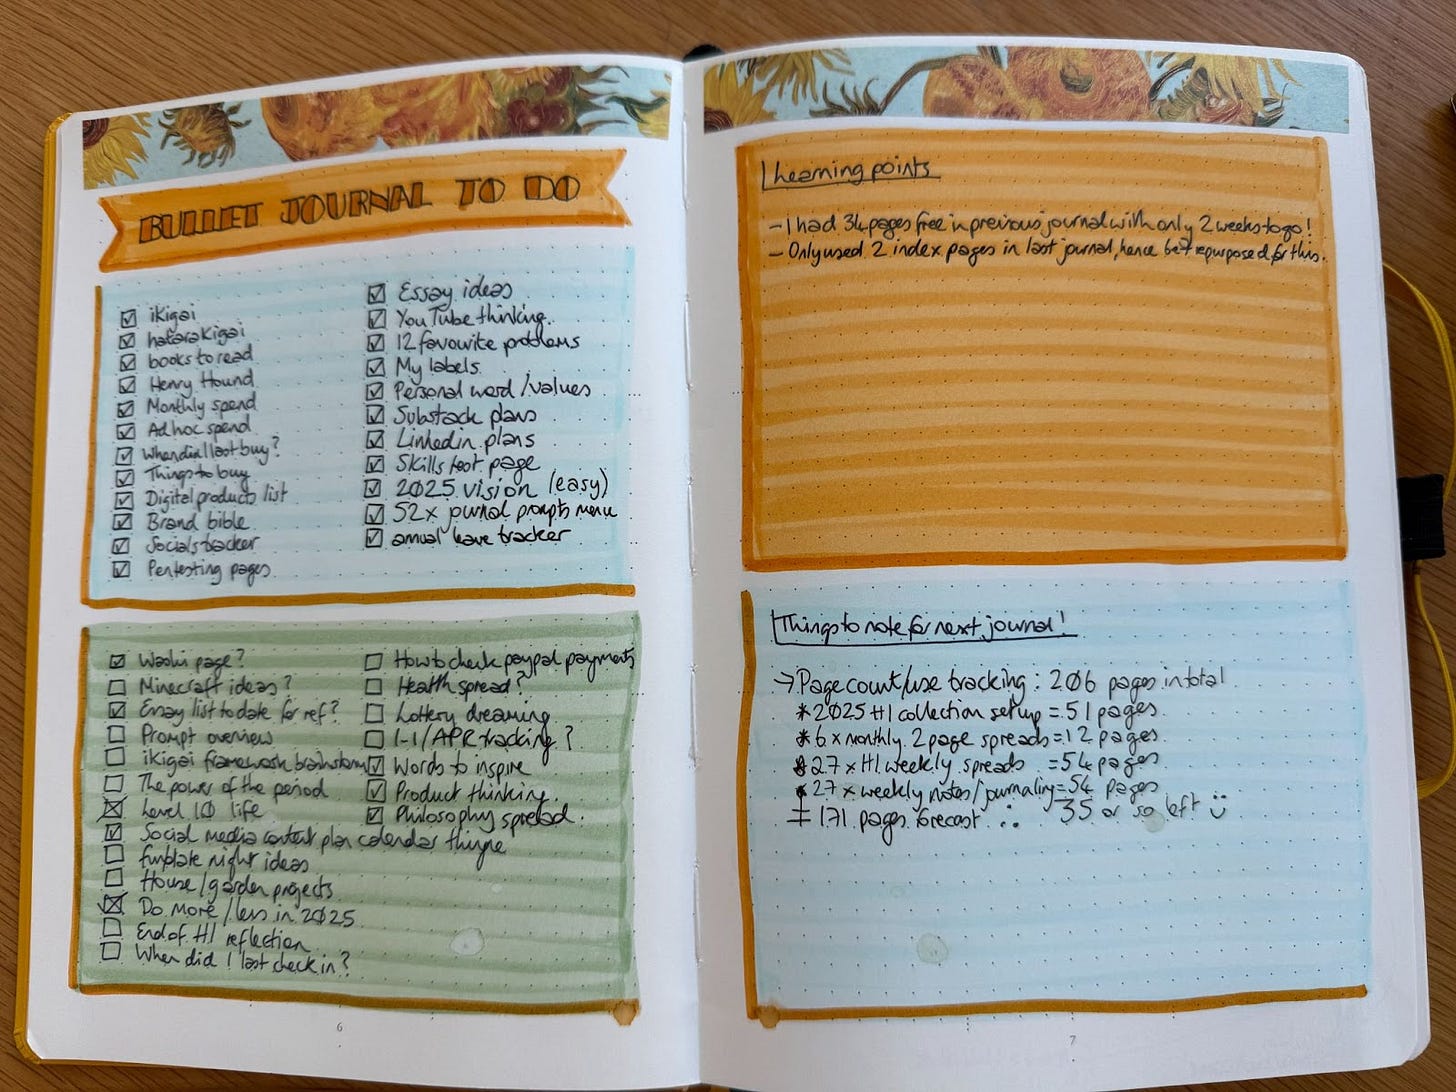 BULLET JOURNAL TO DO
☑ ikigai
☑ hatarakigai
☑ books to read
☑ Henry Hound
☑ Monthly spend
☑ Ad hoc spend
☑ When did I last buy?
☑ Things to buy
☑ Digital products list
☑ Brand bible
☑ Socials tracker
☑ Pen testing pages
☑ Essay ideas
☑ YouTube thinking
☑ 12 favourite problems
☑ My labels
☑ Personal word/values
☑ Substack plans
☑ Linkedin plans
☑ Skills test page
☑ 2025 vision (easy)
☑ 52x journal prompts menu
☑ annual leave tracker
☑ Washi page?
☐ Minecraft ideas?
☑ Essay list to date for ref?
☐ Prompt overview
☐ ikigai framework brainstorm
☐ The power of the period
☒ Level 10 life
☑ Social media content plan calendar thingie
☐ funplate night ideas
☐ House/garden projects
☒ Do more/less in 2025
☐ End of H1 reflection
☐ When did I last check in?
☐ How to check paypal payments
☐ Health spread?
☐ Lottery dreaming
☐ 1-1/APR tracking?
☑ Words to inspire
☑ Product thinking
☑ Philosophy spread
6
Learning points
- I had 34 pages free in previous journal with only 2 weeks to go!
- Only used 2 index pages in last journal, hence 6+7 repurposed for this.
Things to note for next journal!
→ Page count/use tracking: 206 pages in total
* 2025 H1 collection set up = 51 pages
* 6 x monthly 2 page spreads = 12 pages
* 27 x H1 weekly spreads = 54 pages
* 27 x weekly notes/journaling = 54 pages
= 171 pages forecast ∴ 35 or so left :)
7